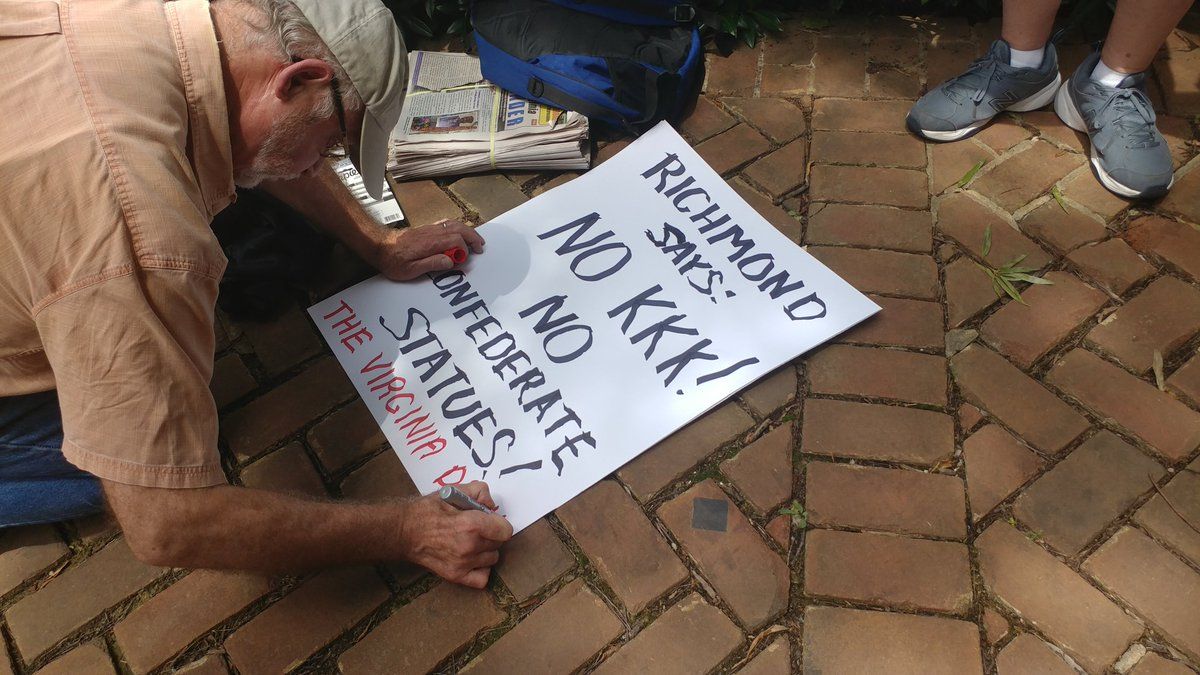 RICHMOND
SAYS:
NO KKK!
NO
CONFEDERATE
STATUES!
THE VIRGINIA